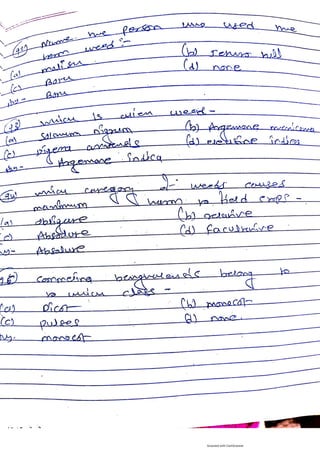 Name the Person who used the
term weed :-
(a) (b) Jethro hill
(c) Boru (d) none
Ans - Boru
which is alien weed -
(a) Solanum nigrum (b) Argemone mexicana
(c) Digera arvensis (d) indica
Ans - Argemone indica
which category of weeds causes
maximum harm to field crops -
(a) obligate (b) relative
(c) Absolute (d) facultative
Ans - Absolute
Commelina benghalensis belong to
to which class -
(a) Dicot (b) monocot
(c) pulses (d) none
Ans. monocot
Scanned with CamScanner